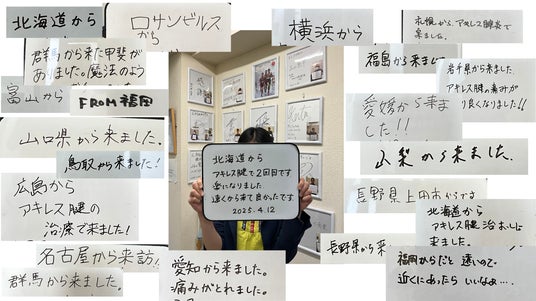 北海道から
ロサンゼルス
から
横浜から
札幌から、アキレス腱炎で
来ました。
群馬から来た甲斐が
ありました。魔法のよう
福島から来まし
岩手県から来ました
アキレス腱の
良くなりました!!
富山から
FROM福岡
愛媛から来ま
した!!
山口県から来ました。
鳥取から来ました!
山梨から来ました。
北海道から
アキレス腱で2回目です
楽になりました
遠くから来て良かったです
2025.4.12
広島から
アキレス腱の
治療で来ました!
長野県上田市からです
北海道から
アキレス腱治おしに
来ました。
名古屋から来訪!
長野県から来
群馬から来ました!
愛知から来ました。
痛みがとれました。
福岡からだと遠いので、
近くにあったらいいなぁ…